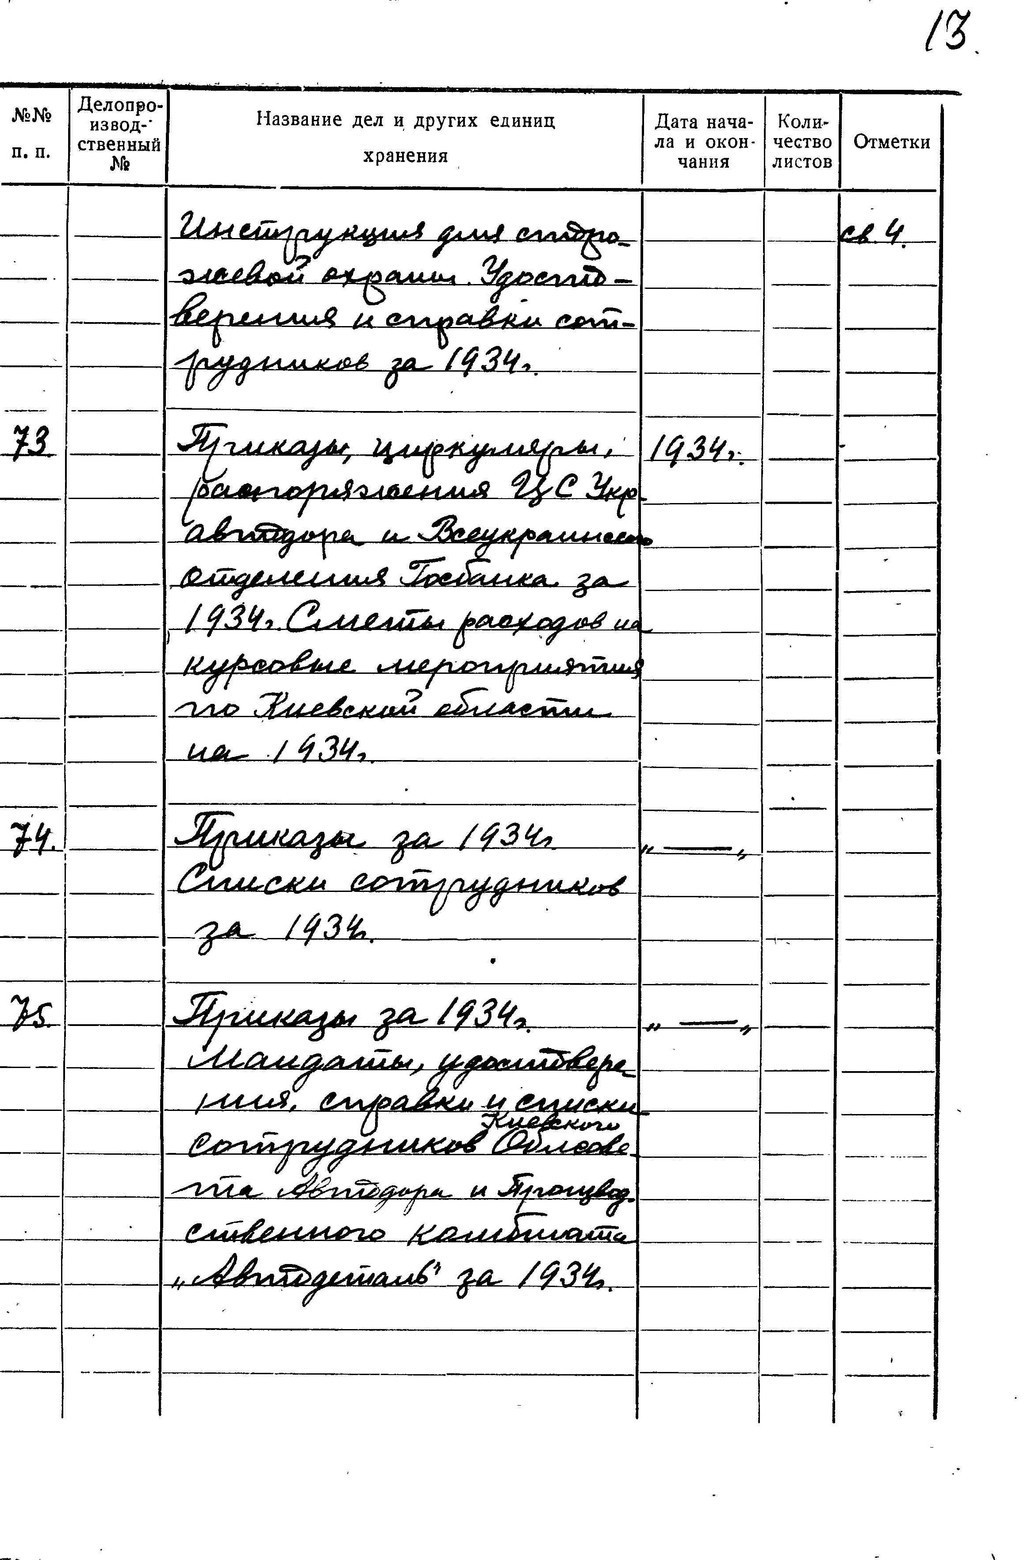 13.
№№ п. п.
Делопро-
извод-
ственный
№
Название дел и других единиц
хранения
Дата нача-
ла и окон-
чания
Коли-
чество
листов
Отметки
Инструкция для сторо-
св. 4.
жевой охраны. Удосто-
верения и справки сот-
рудников за 1934г.
73. Приказы, циркуляры, 1934г.
распоряжения ЦС Укр-
автодора и Всеукраинского
отделения Госбанка за
1934г. Сметы расходов на
курсовые мероприятия
по Киевской области
на 1934г.
74. Приказы за 1934г. „ — „
Списки сотрудников
за 1934г.
75. Приказы за 1934г. „ — „
Мандаты, удостовере-
ния, справки и списки
Киевского
сотрудников Облсове-
та Автодора и Производ-
ственного комбината
„Автодеталь" за 1934г.